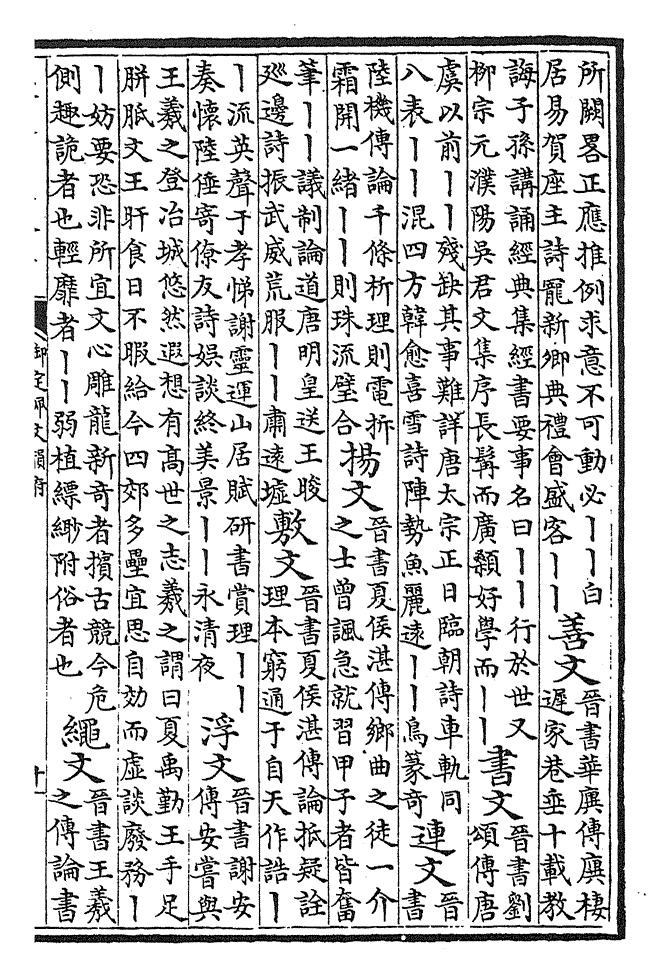 所闕畧正應推例求意不可動必丨丨白
居易賀座主詩寵新卿典禮會盛客丨丨
善文
晉書華廙傳廙棲
遲家巷垂十載教
誨子孫講誦經典集經書要事名曰丨丨行於世又
柳宗元濮陽吳君文集序長髯而廣顙好學而丨丨
書文
晉書劉
頌傳唐
虞以前丨丨殘缺其事難詳唐太宗正日臨朝詩車軌同
八表丨丨混四方韓愈喜雪詩陣勢魚麗遠丨丨鳥篆奇
連文
晉
書
陸機傳論千條析理則電拆
霜開一緒丨丨則珠流璧合
揚文
晉書夏侯湛傳鄉曲之徒一介
之士曾諷急就習甲子者皆奮
筆丨丨議制論道唐明皇送王晙
巡邊詩振武威荒服丨丨肅遠墟
敷文
晉書夏侯湛傳論抵疑詮
理本窮通于自天作誥丨
丨流英聲于孝悌謝靈運山居賦研書賞理丨丨
奏懷陸倕寄僚友詩娛談終美景丨丨永清夜
浮文
晉書謝安
傳安嘗與
王羲之登冶城悠然遐想有高世之志羲之謂曰夏禹勤王手足
胼胝文王旰食日不暇給今四郊多壘宜思自効而虛談廢務丨
丨妨要恐非所宜文心雕龍新奇者擯古競今危
側趣詭者也輕靡者丨丨弱植縹緲附俗者也
繩文
晉書王羲
之傳論書
御定佩文韻府